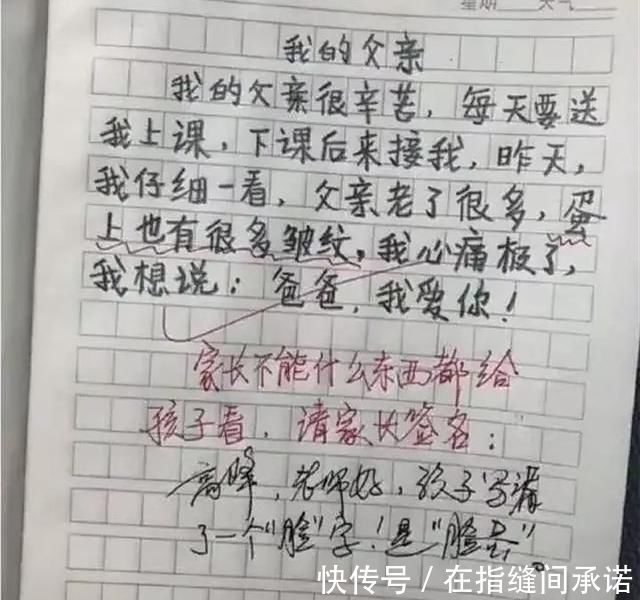 星期 天气
我的父亲
我的父亲很辛苦，每天要送
我上课，下课后来接我，昨天，
我仔细一看，父亲老了很多，蛋
上也有很多皱纹，我心痛极了，
我想说：爸爸，我爱你！
家长不能什么东西都给
孩子看，请家长签名：
高峰，老师好，孩子写漏
了一个"脸"字！是"脸蛋"。
快传号／在指缝间承诺